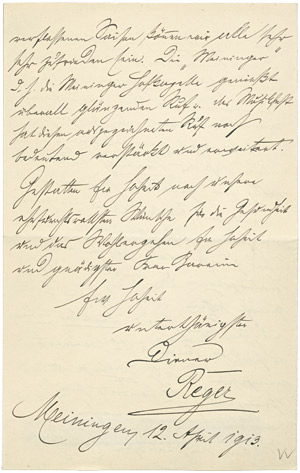 verflossenen Saison können wir alle sehr
sehr zufrieden sein. Die „Meininger"
d. h. die Meininger Hofkapelle genießt
überall glänzenden Ruf u. das Musikfest
hat diesen ausgezeichneten Ruf noch
bedeutend verstärkt und erweitert.
Gestatten Ew Hoheit noch unsere
ehrfurchtsvollsten Wünsche für die Gesundheit
und das Wohlergehen Ew Hoheit
und gnädigster Frau Baronin
Ew Hoheit
unterthänigster
Diener
Reger
Meiningen, 12. April 1913.